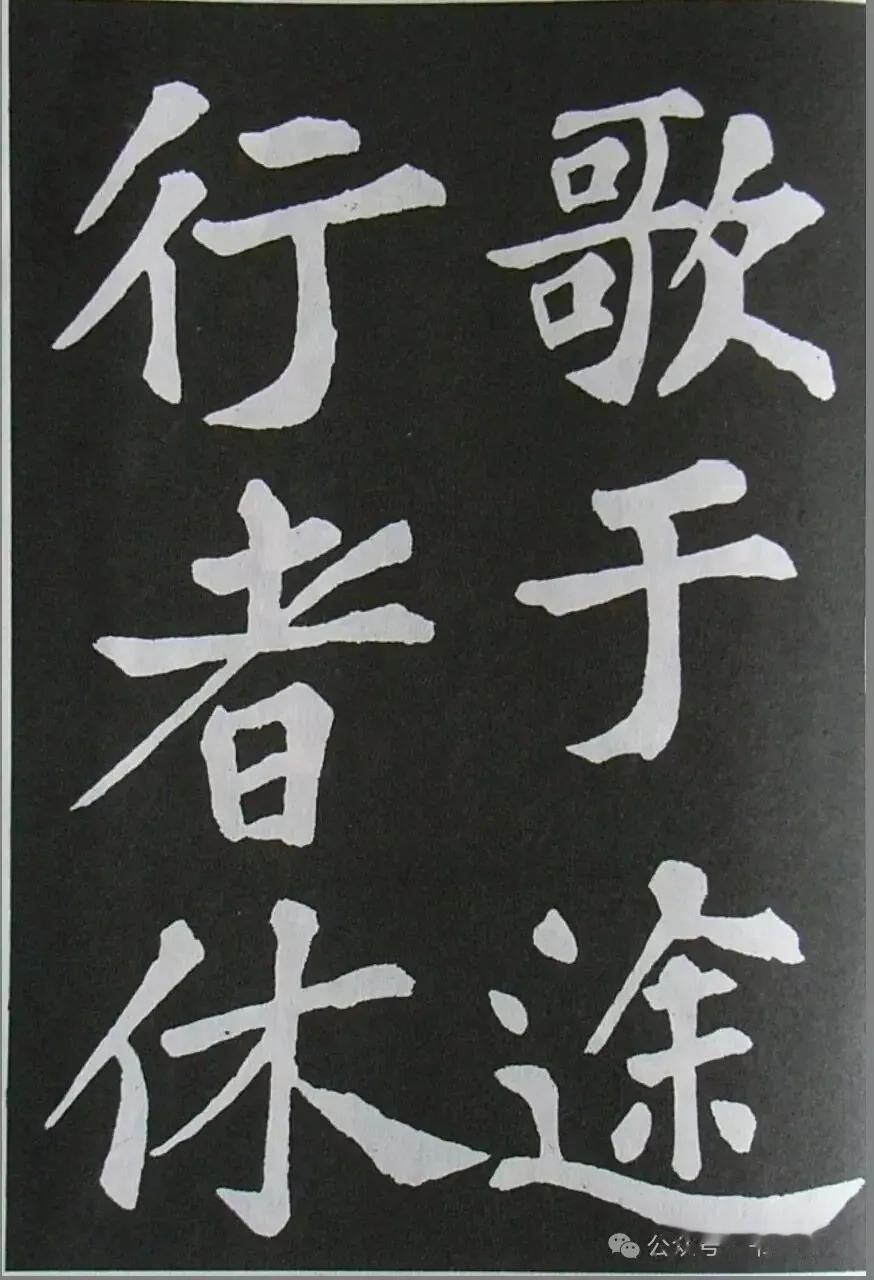 歌于途
行者休
公众号